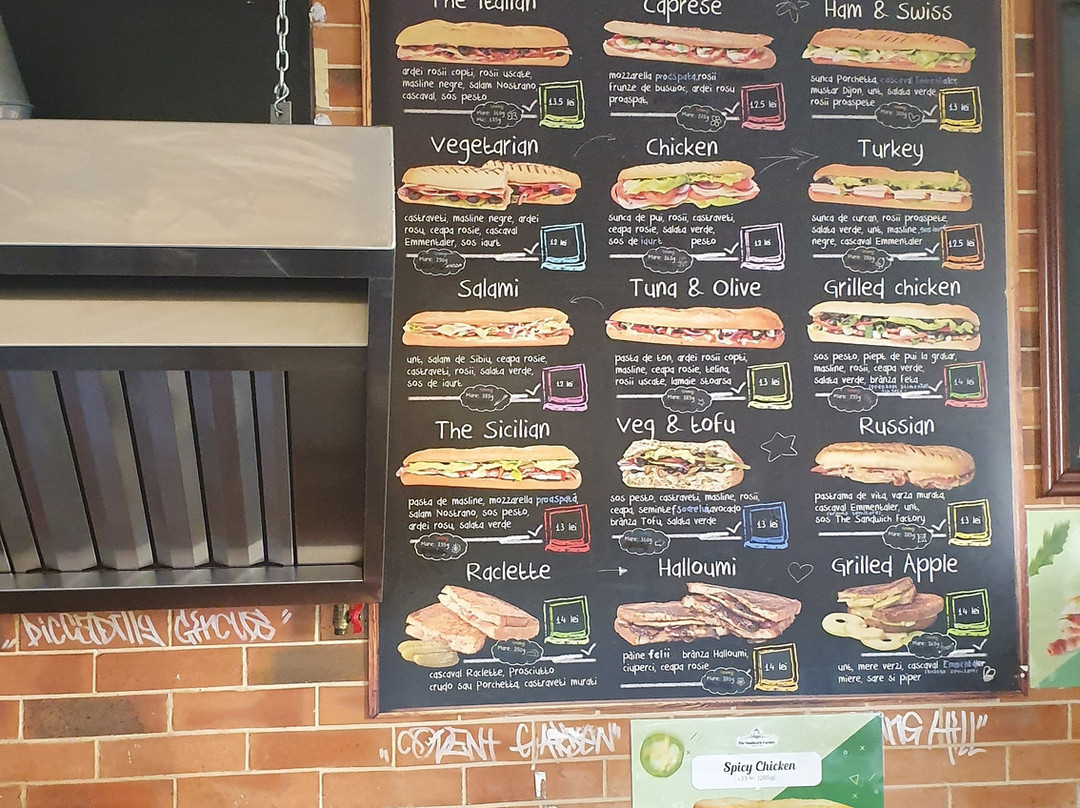 The Italian
ardei rosii copti, rosii uscate,
masline negre, salam Nostrano,
cascaval, sos pesto
13.5 lei
Caprese
mozzarella proaspata, rosii
frunze de busuioc, ardei rosu
proaspat,
12.5 lei
Ham & Swiss
sunca Porchetta, cascaval Emmentaler
mustar Dijon, unt, salata verde,
rosii proaspete
13 lei
Vegetarian
castraveti, masline negre, ardei
rosu, ceapa rosie, cascaval
Emmentaler, sos iaurt
12 lei
Chicken
sunca de pui, rosii, castraveti,
ceapa rosie, salata verde,
sos de iaurt pesto
12 lei
Turkey
sunca de curcan, rosii proaspete,
salata verde, unt, masline
negre, cascaval Emmentaler
12.5 lei
Salami
unt, salam de Sibiu, ceapa rosie,
castraveti, rosii, salata verde,
sos de iaurt
12 lei
Tuna & Olive
pasta de ton, ardei rosii copti,
masline, ceapa rosie, telina,
rosii uscate, lamaie stoarsa
13 lei
Grilled chicken
sos pesto, piept de pui la gratar,
masline, rosii, ceapa verde,
salata verde, brânza feta
14 lei
The Sicilian
pasta de masline, mozzarella proaspata,
salam Nostrano, sos pesto,
ardei rosu, salata verde
13 lei
Veg & tofu
sos pesto, castraveti, masline, rosii,
ceapa, seminte fsoarelui, avocado
brânza Tofu, salata verde
13 lei
Russian
pastrama de vita, varza murata,
cascaval Emmentaler, unt,
sos The Sandwich Factory
13 lei
Raclette
14 lei
cascaval Raclette, Prosciutto
crudo sau Porchetta, castraveti murati
Halloumi
pâine felii brânza Halloumi,
ciuperci, ceapa rosie
14 lei
Grilled Apple
14 lei
unt, mere verzi, cascaval Emmentaler
miere, sare si piper
"PICCADILLY CIRCUS"
"COVENT GARDEN"
ING HILL"
The Sandwich Factory
Spicy Chicken